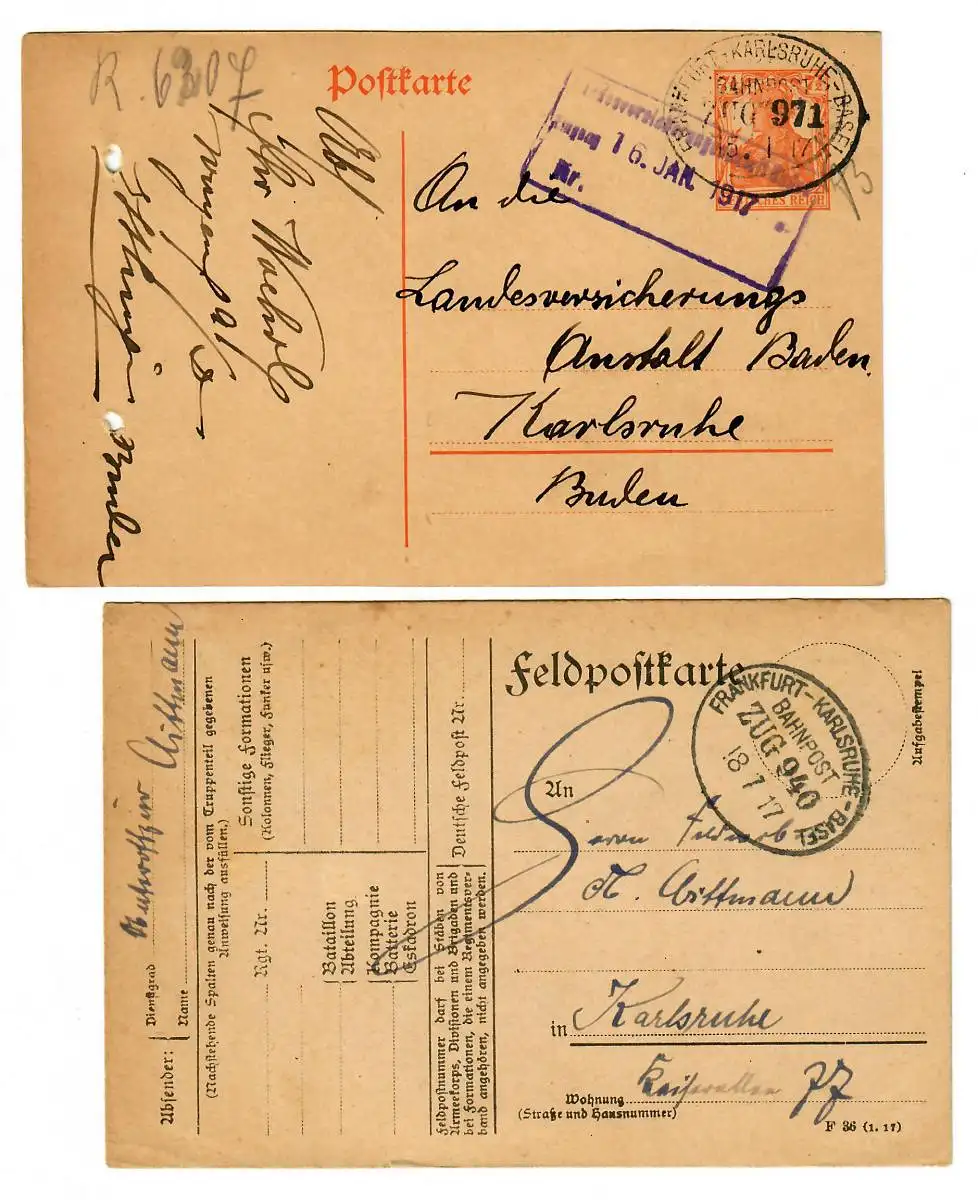 R. 6307
Postkarte
FRANKFURT-KARLSRUHE-BASEL
BAHNPOST
ZUG 971
1 17
DEUTSCHES REICH
16. JAN. 1917
Nr.
An die
Landesversicherungs
Anstalt Baden.
Karlsruhe
Baden
Abs/
Feldpostkarte
Aufgabestempel
FRANKFURT-KARLSRUHE-BASEL
BAHNPOST
ZUG 940
18 1 17
An
Herrn
in Karlsruhe
77
Wohnung
(Straße und Hausnummer)
F 36 (1. 17)
Absender:
Dienstgrad Unteroffizier
Name
(Nachstehende Spalten genau nach der vom Truppenteil gegebenen
Anweisung ausfüllen.)
Rgt. Nr.
Sonstige Formationen
(Kolonnen, Flieger, Funker usw.)
Bataillon
Abteilung
Kompagnie
Batterie
Eskadron
Deutsche Feldpost Nr.
Feldpostnummer darf bei Stäben von
Armeekorps, Divisionen und Brigaden und
bei Formationen, die einem Regimentsver-
band angehören, nicht angegeben werden.